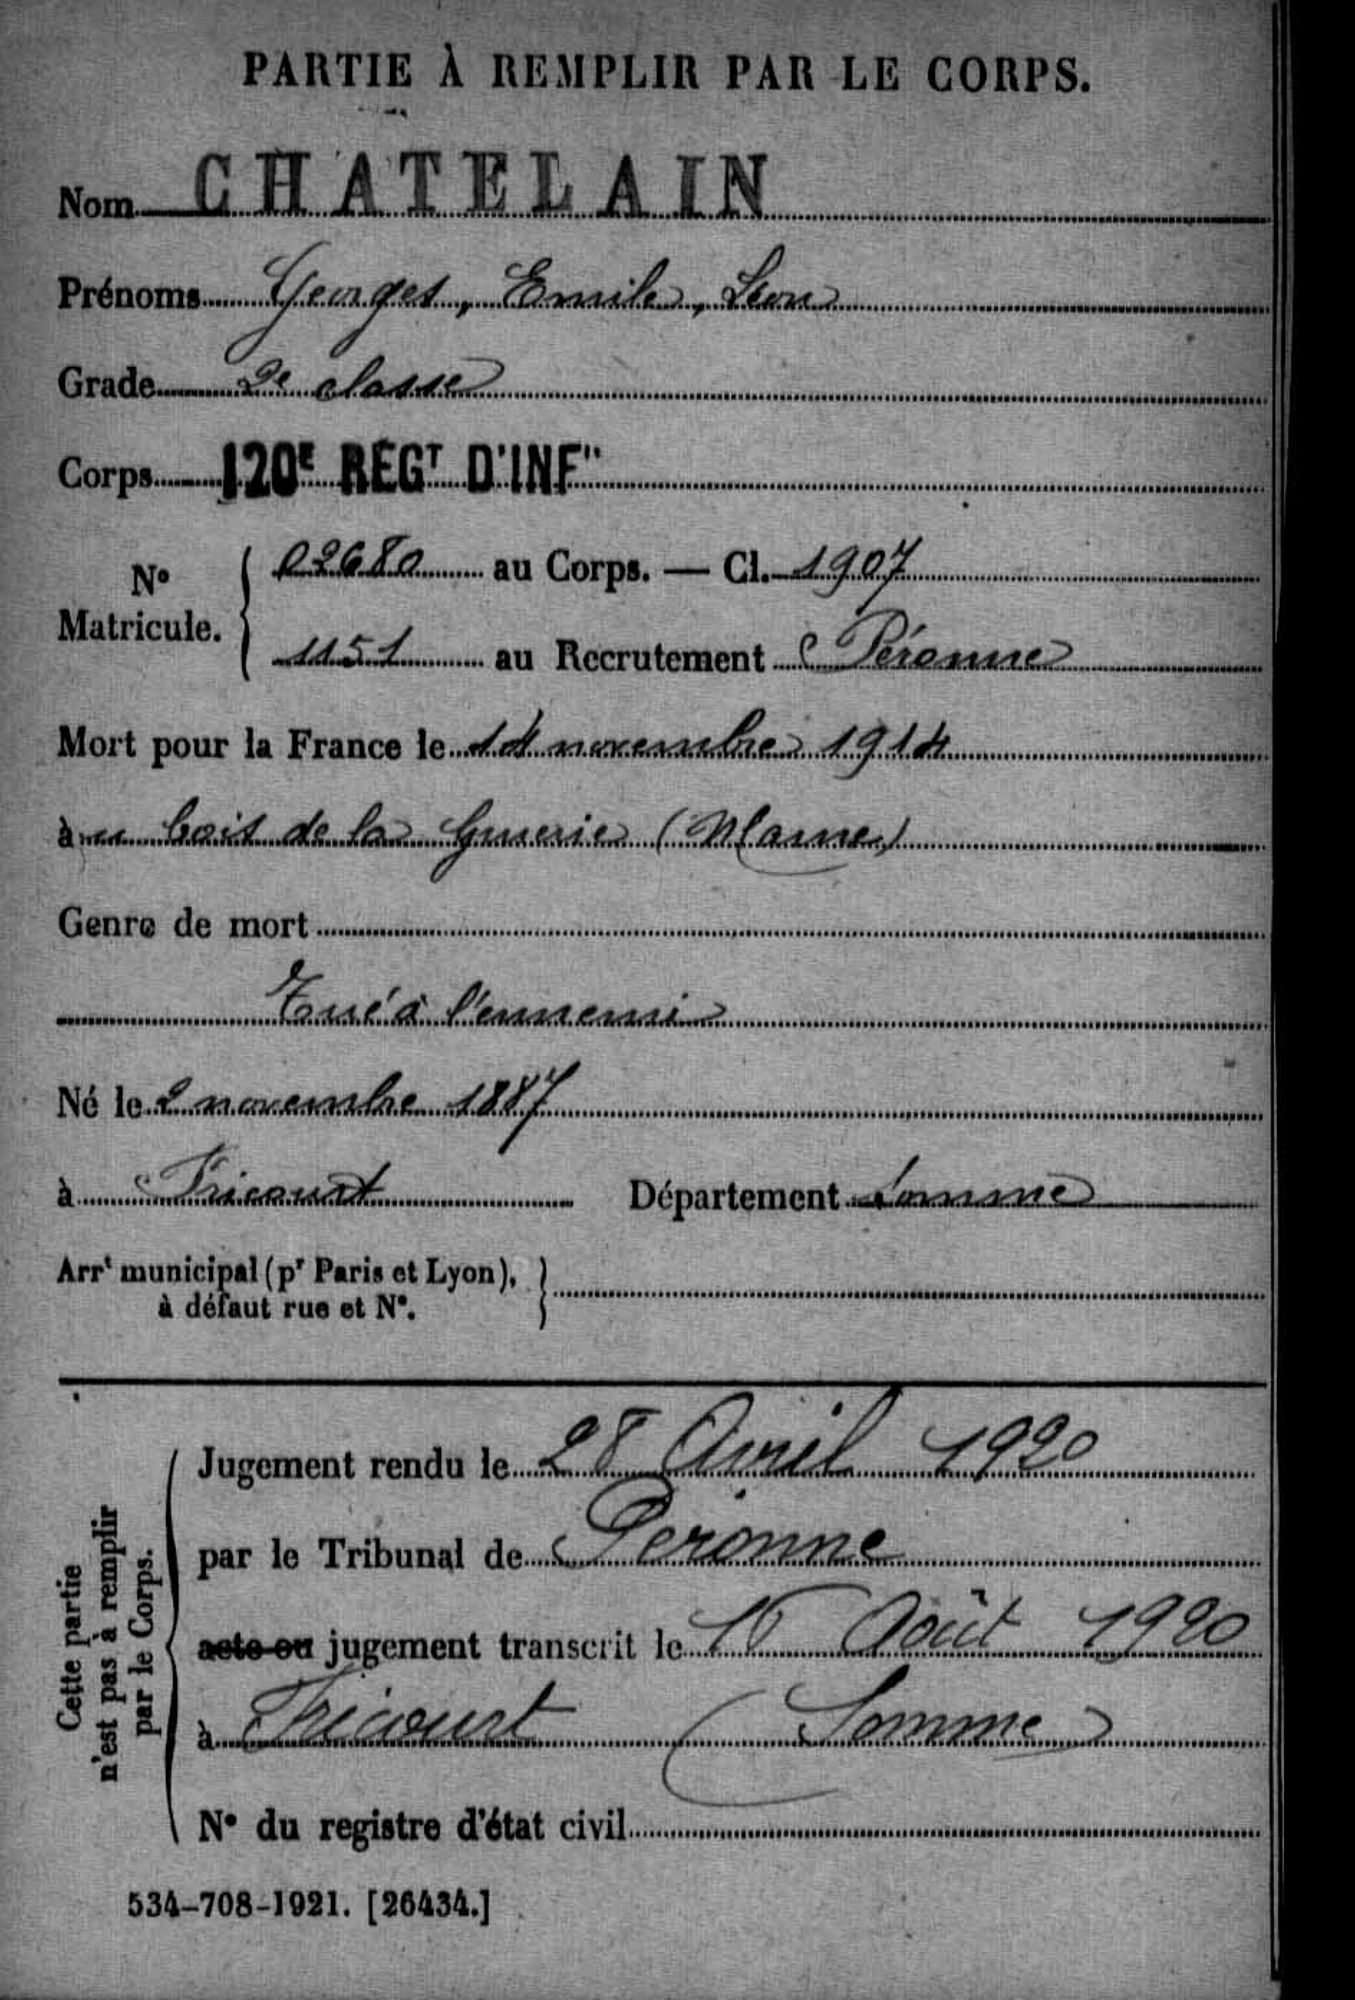 PARTIE À REMPLIR PAR LE CORPS.
Nom CHATELAIN
Prénoms Georges, Emile, Leon
Grade 2e classe
Corps 120E REGT D'INFie
No Matricule. { 02680 au Corps. — Cl. 1907
1151 au Recrutement Péronne
Mort pour la France le 14 novembre 1914
à u bois de la Gruerie (Marne)
Genre de mort
Tué à l'ennemi
Né le 2 novembre 1887
à Fricourt Département Somme
Arrt municipal (pr Paris et Lyon), }
à défaut rue et No.
Cette partie
n'est pas à remplir
par le Corps.
Jugement rendu le 28 Avril 1920
par le Tribunal de Peronne
acte ou jugement transcrit le Août 1920
à Fricourt (Somme)
No du registre d'état civil
534-708-1921. [26434.]